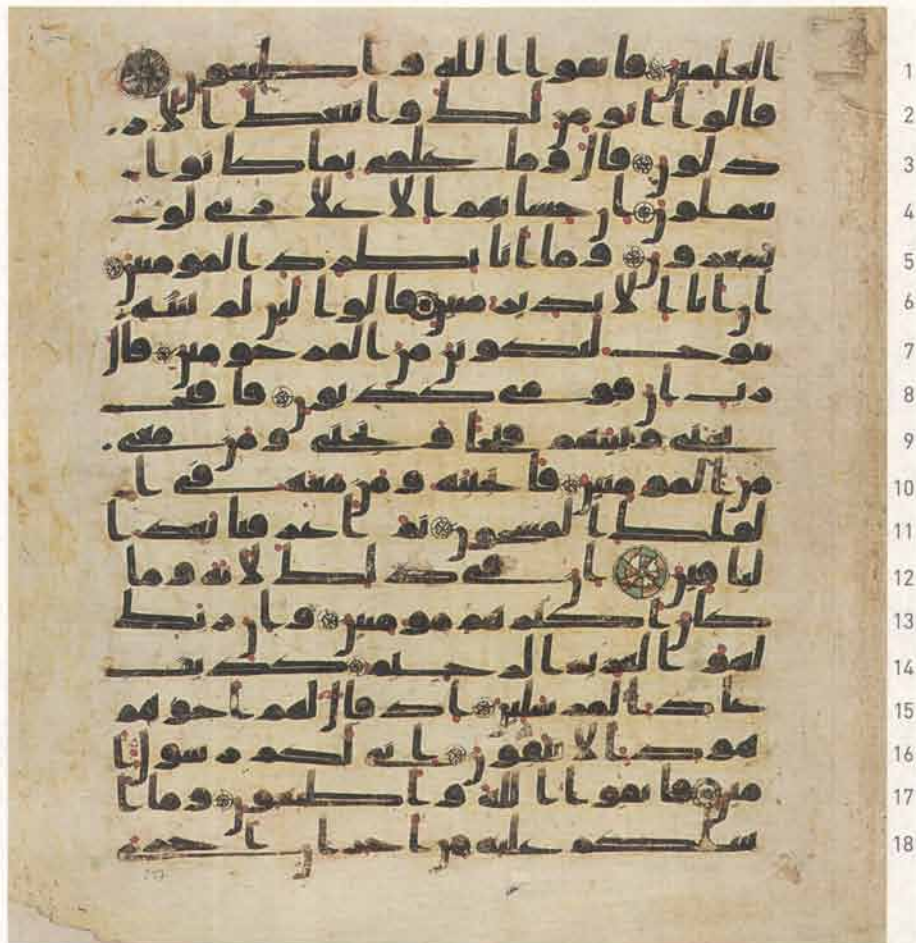 1 العلمين فاتقوا الله واطيعون
2 قالوا انومن لك واتبعك الار
3 ذلون قال وما علمي بما كانوا
4 يعملون ان حسابهم الا على ربي لو
5 تشعرون وما انا بطرد المومنين
6 ان انا الا نذير مبين قالوا لين لم تنته
7 ينوح لتكونن من المرجومين قال
8 رب ان قومي كذبون فافتح
9 بيني وبينهم فتحا ونجني ومن معي
10 من المومنين فانجينه ومن معه في ا
11 لفلك المشحون ثم اغرقنا بعد ا
12 لباقين ان في ذلك لاية وما
13 كان اكثرهم مومنين وان ربك
14 لهو العزيز الرحيم كذبت
15 عاد المرسلين اذ قال لهم اخوهم
16 هود الا تتقون اني لكم رسول ا
17 مين فاتقوا الله واطيعون وما ا
18 سلكم عليه من اجر ان اجري